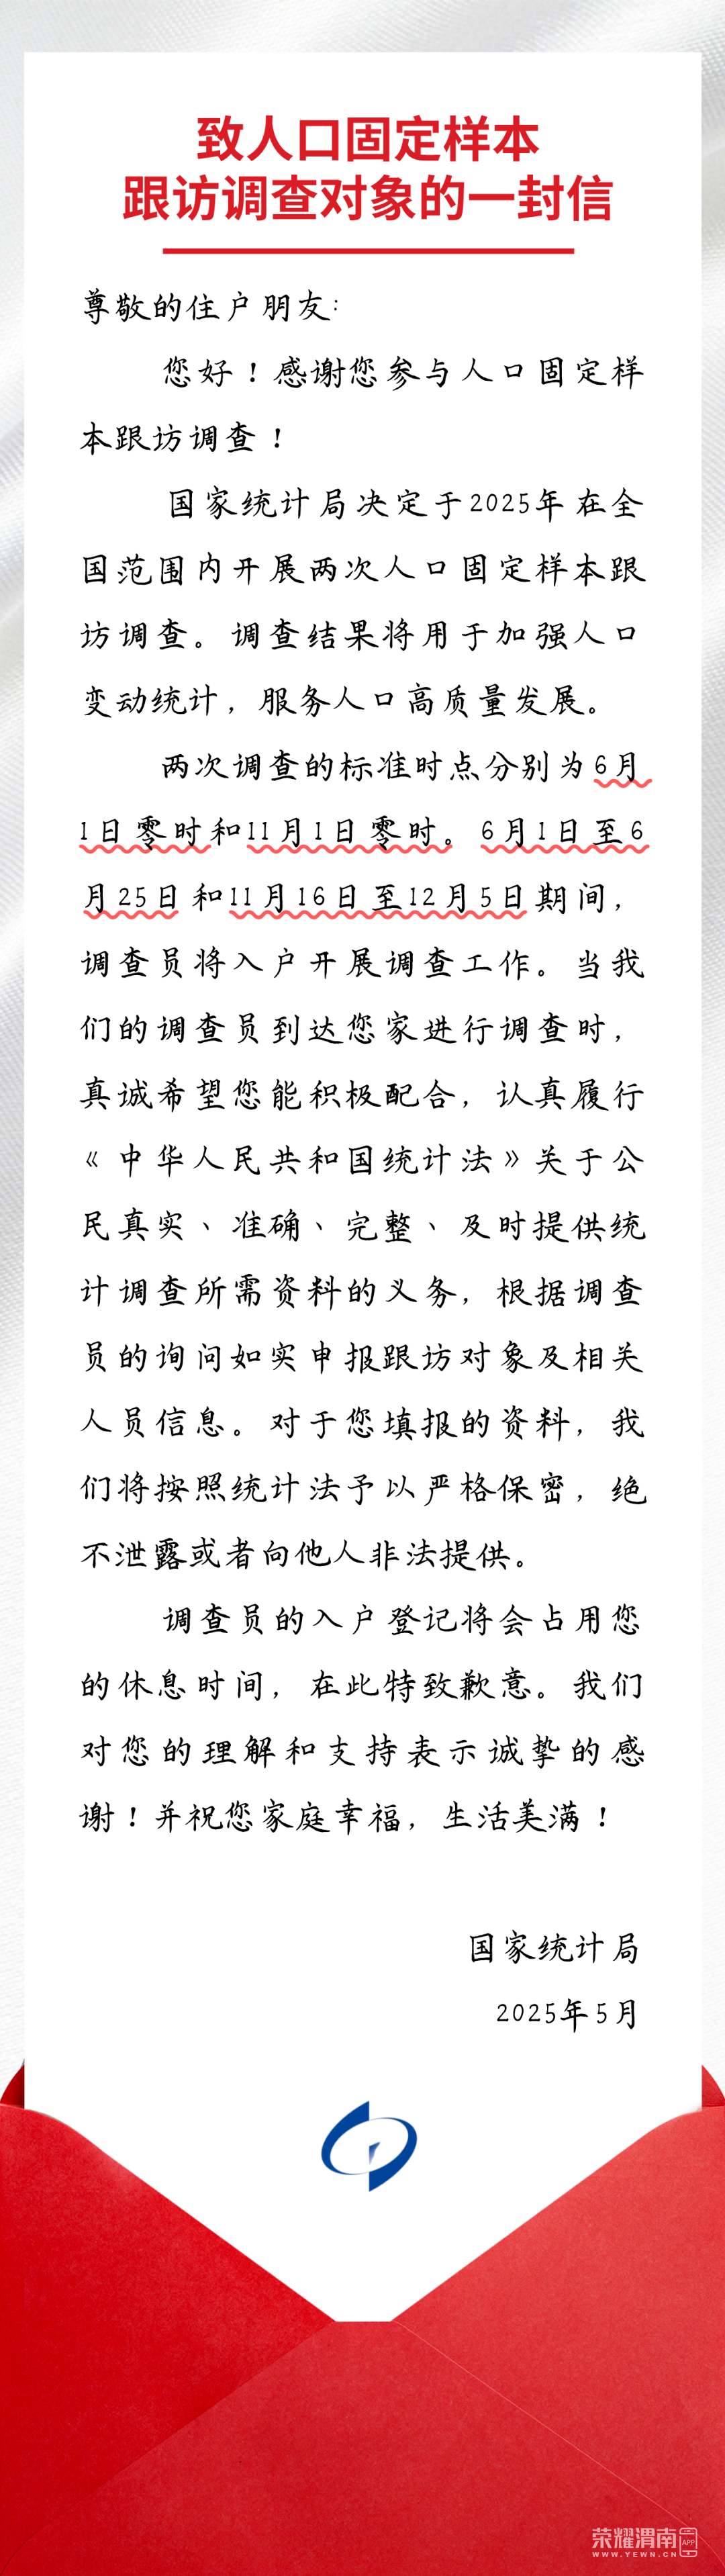 致人口固定样本
跟访调查对象的一封信
尊敬的住户朋友：
您好！感谢您参与人口固定样
本跟访调查！
国家统计局决定于2025年在全
国范围内开展两次人口固定样本跟
访调查。调查结果将用于加强人口
变动统计，服务人口高质量发展。
两次调查的标准时点分别为6月
1日零时和11月1日零时。6月1日至6
月25日和11月16日至12月5日期间，
调查员将入户开展调查工作。当我
们的调查员到达您家进行调查时，
真诚希望您能积极配合，认真履行
《中华人民共和国统计法》关于公
民真实、准确、完整、及时提供统
计调查所需资料的义务，根据调查
员的询问如实申报跟访对象及相关
人员信息。对于您填报的资料，我
们将按照统计法予以严格保密，绝
不泄露或者向他人非法提供。
调查员的入户登记将会占用您
的休息时间，在此特致歉意。我们
对您的理解和支持表示诚挚的感
谢！并祝您家庭幸福，生活美满！
国家统计局
2025年5月
荣耀渭南APP
WWW.YEWN.CN